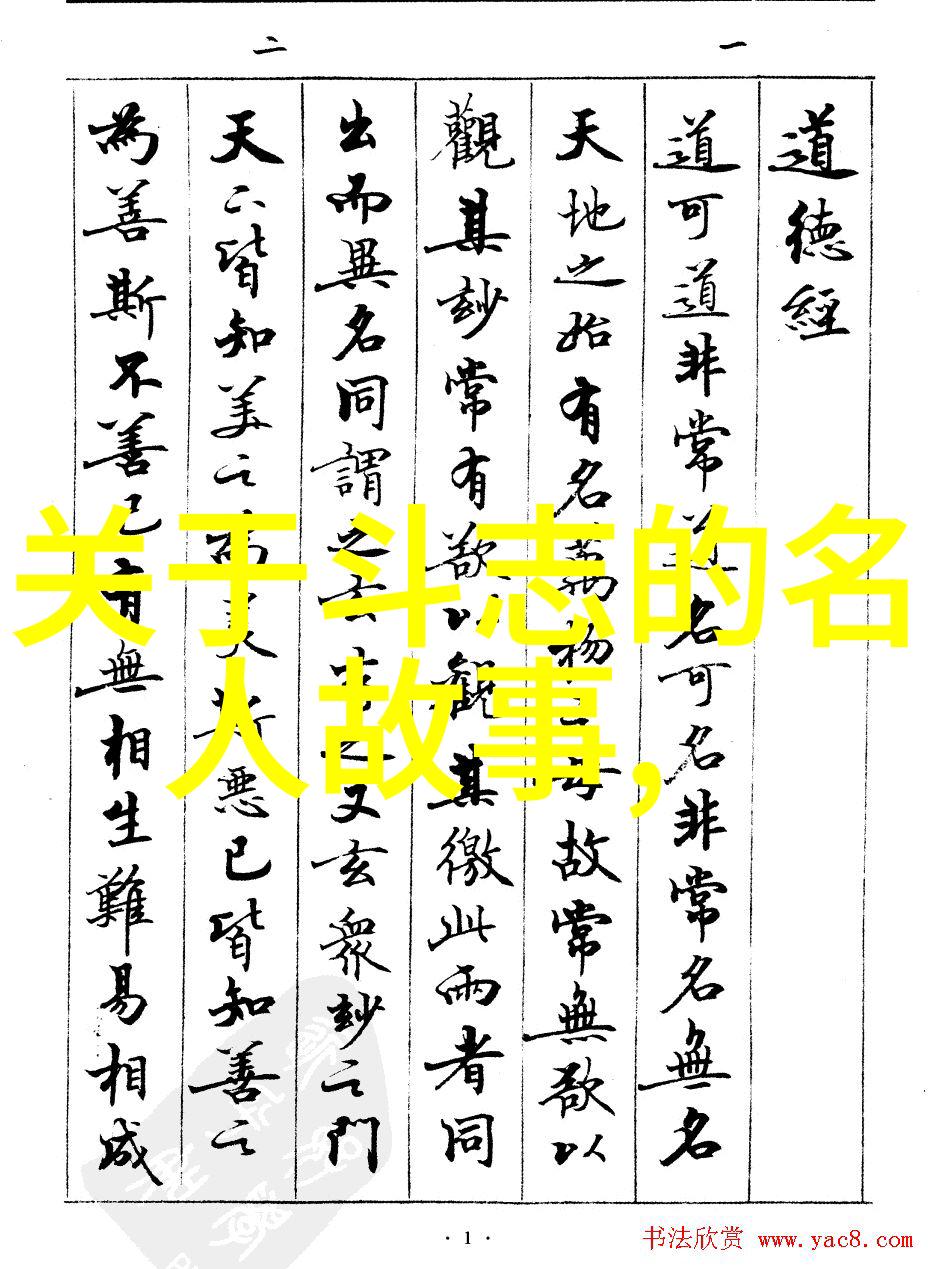 一
二
道德經
道可道非常道名可名非常名無名
天地之始有名萬物之母故常無欲以
觀其玅常有欲以觀其徼此兩者同
出而異名同謂之玄玄之又玄衆玅之門
天下皆知美之為美斯惡已皆知善之
為善斯不善已有無相生難易相成
关于斗志的名
人故事,
· 1 ·
书法欣赏 www.yac8.com